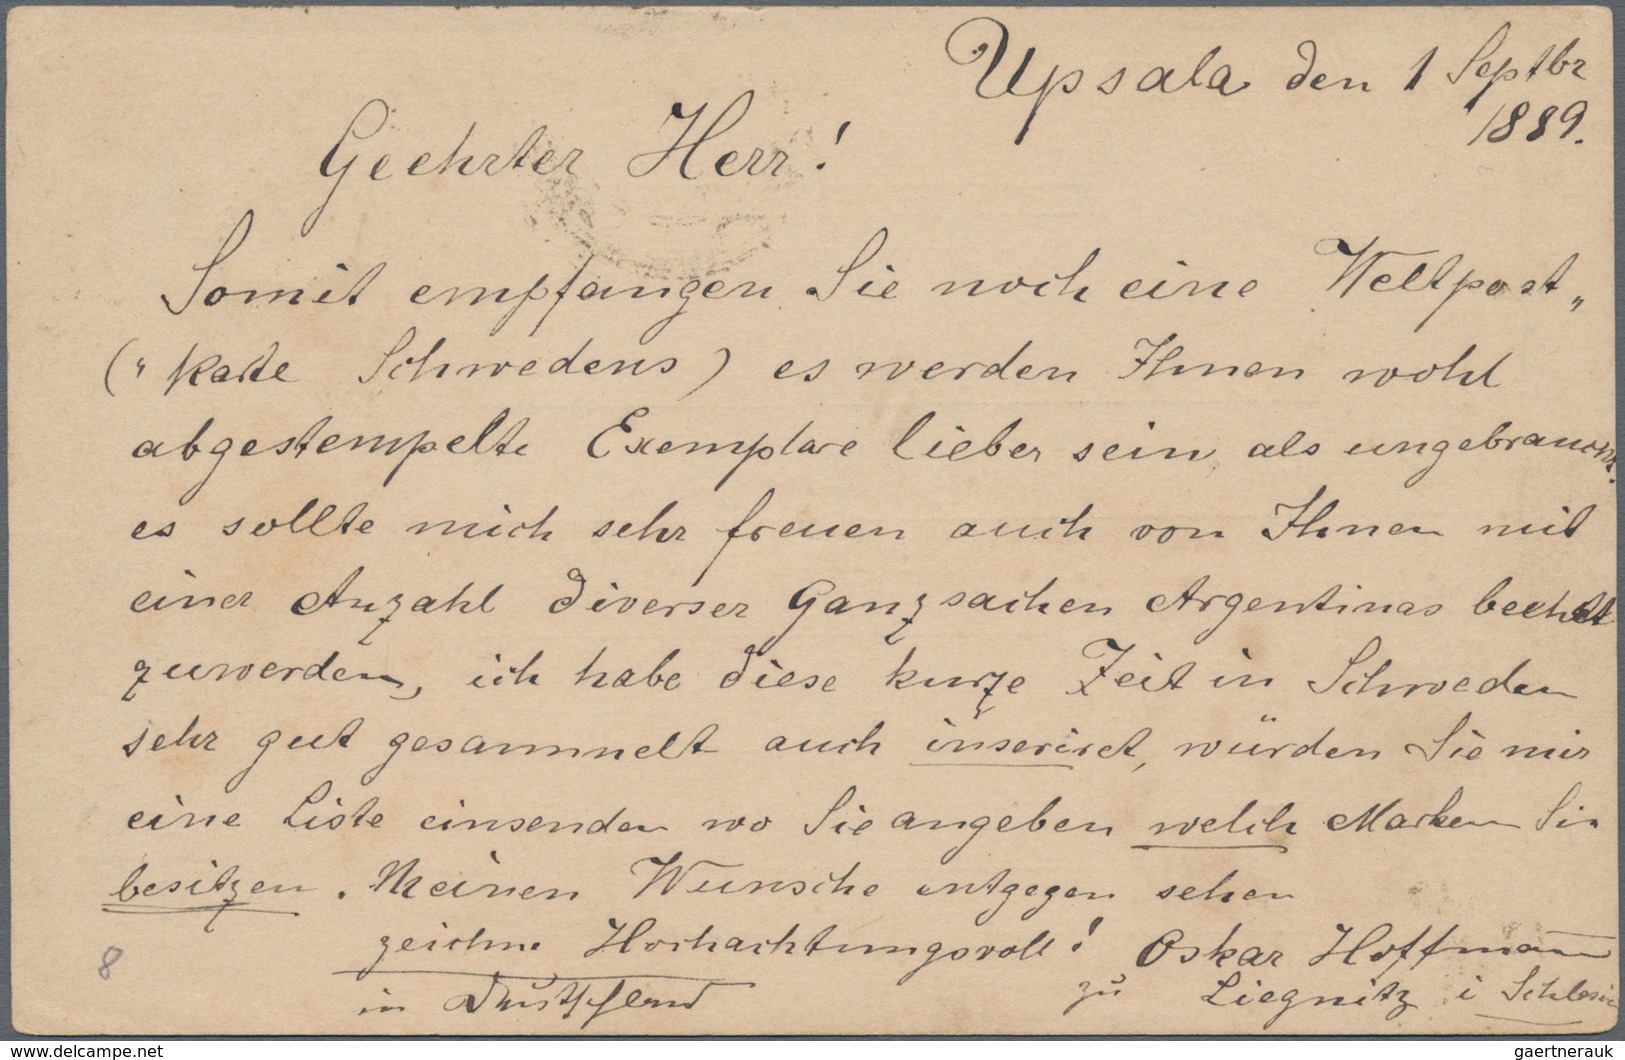 Upsala den 1 Septbr
1889.
Geehrter Herr!
Somit empfangen Sie noch eine Weltpost„
(„ Karte Schwedens) es werden Ihnen wohl
abgestempelte Exemplare lieber sein, als ungebraucht.
es sollte mich sehr freuen auch von Ihnen mit
einer Anzahl diverser Ganzsachen Argentinas beehrt
zuwerden, ich habe diese kurze Zeit in Schweden
sehr gut gesammelt auch inseriret, würden Sie mir
eine Liste einsenden wo Sie angeben welch Marken Sie
besitzen. Meinen Wunsche entgegen sehen
zeichne Hochachtungsvoll! Oskar Hoffmann
in Deutschland zu Liegnitz i Schlesien
8
delcampe.net
gaertnerauk